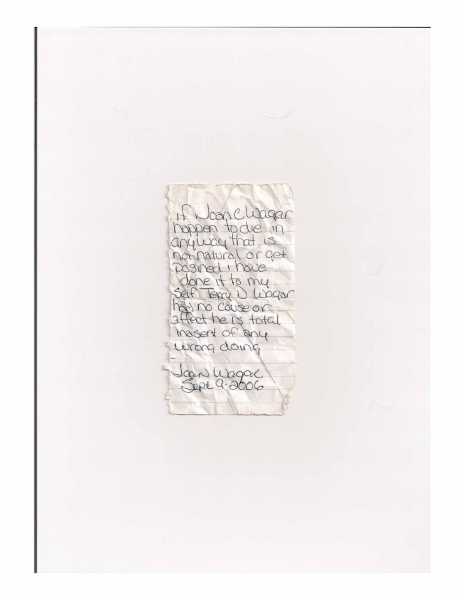 if Joan C Wagar
happen to die in
anyway that is
not natural or get
posined i have
done it to my
self Terry W Wagar
has no cause or
affect he is total
inasent of any
wrong doing
Joan Wagar
Sept 9-2006